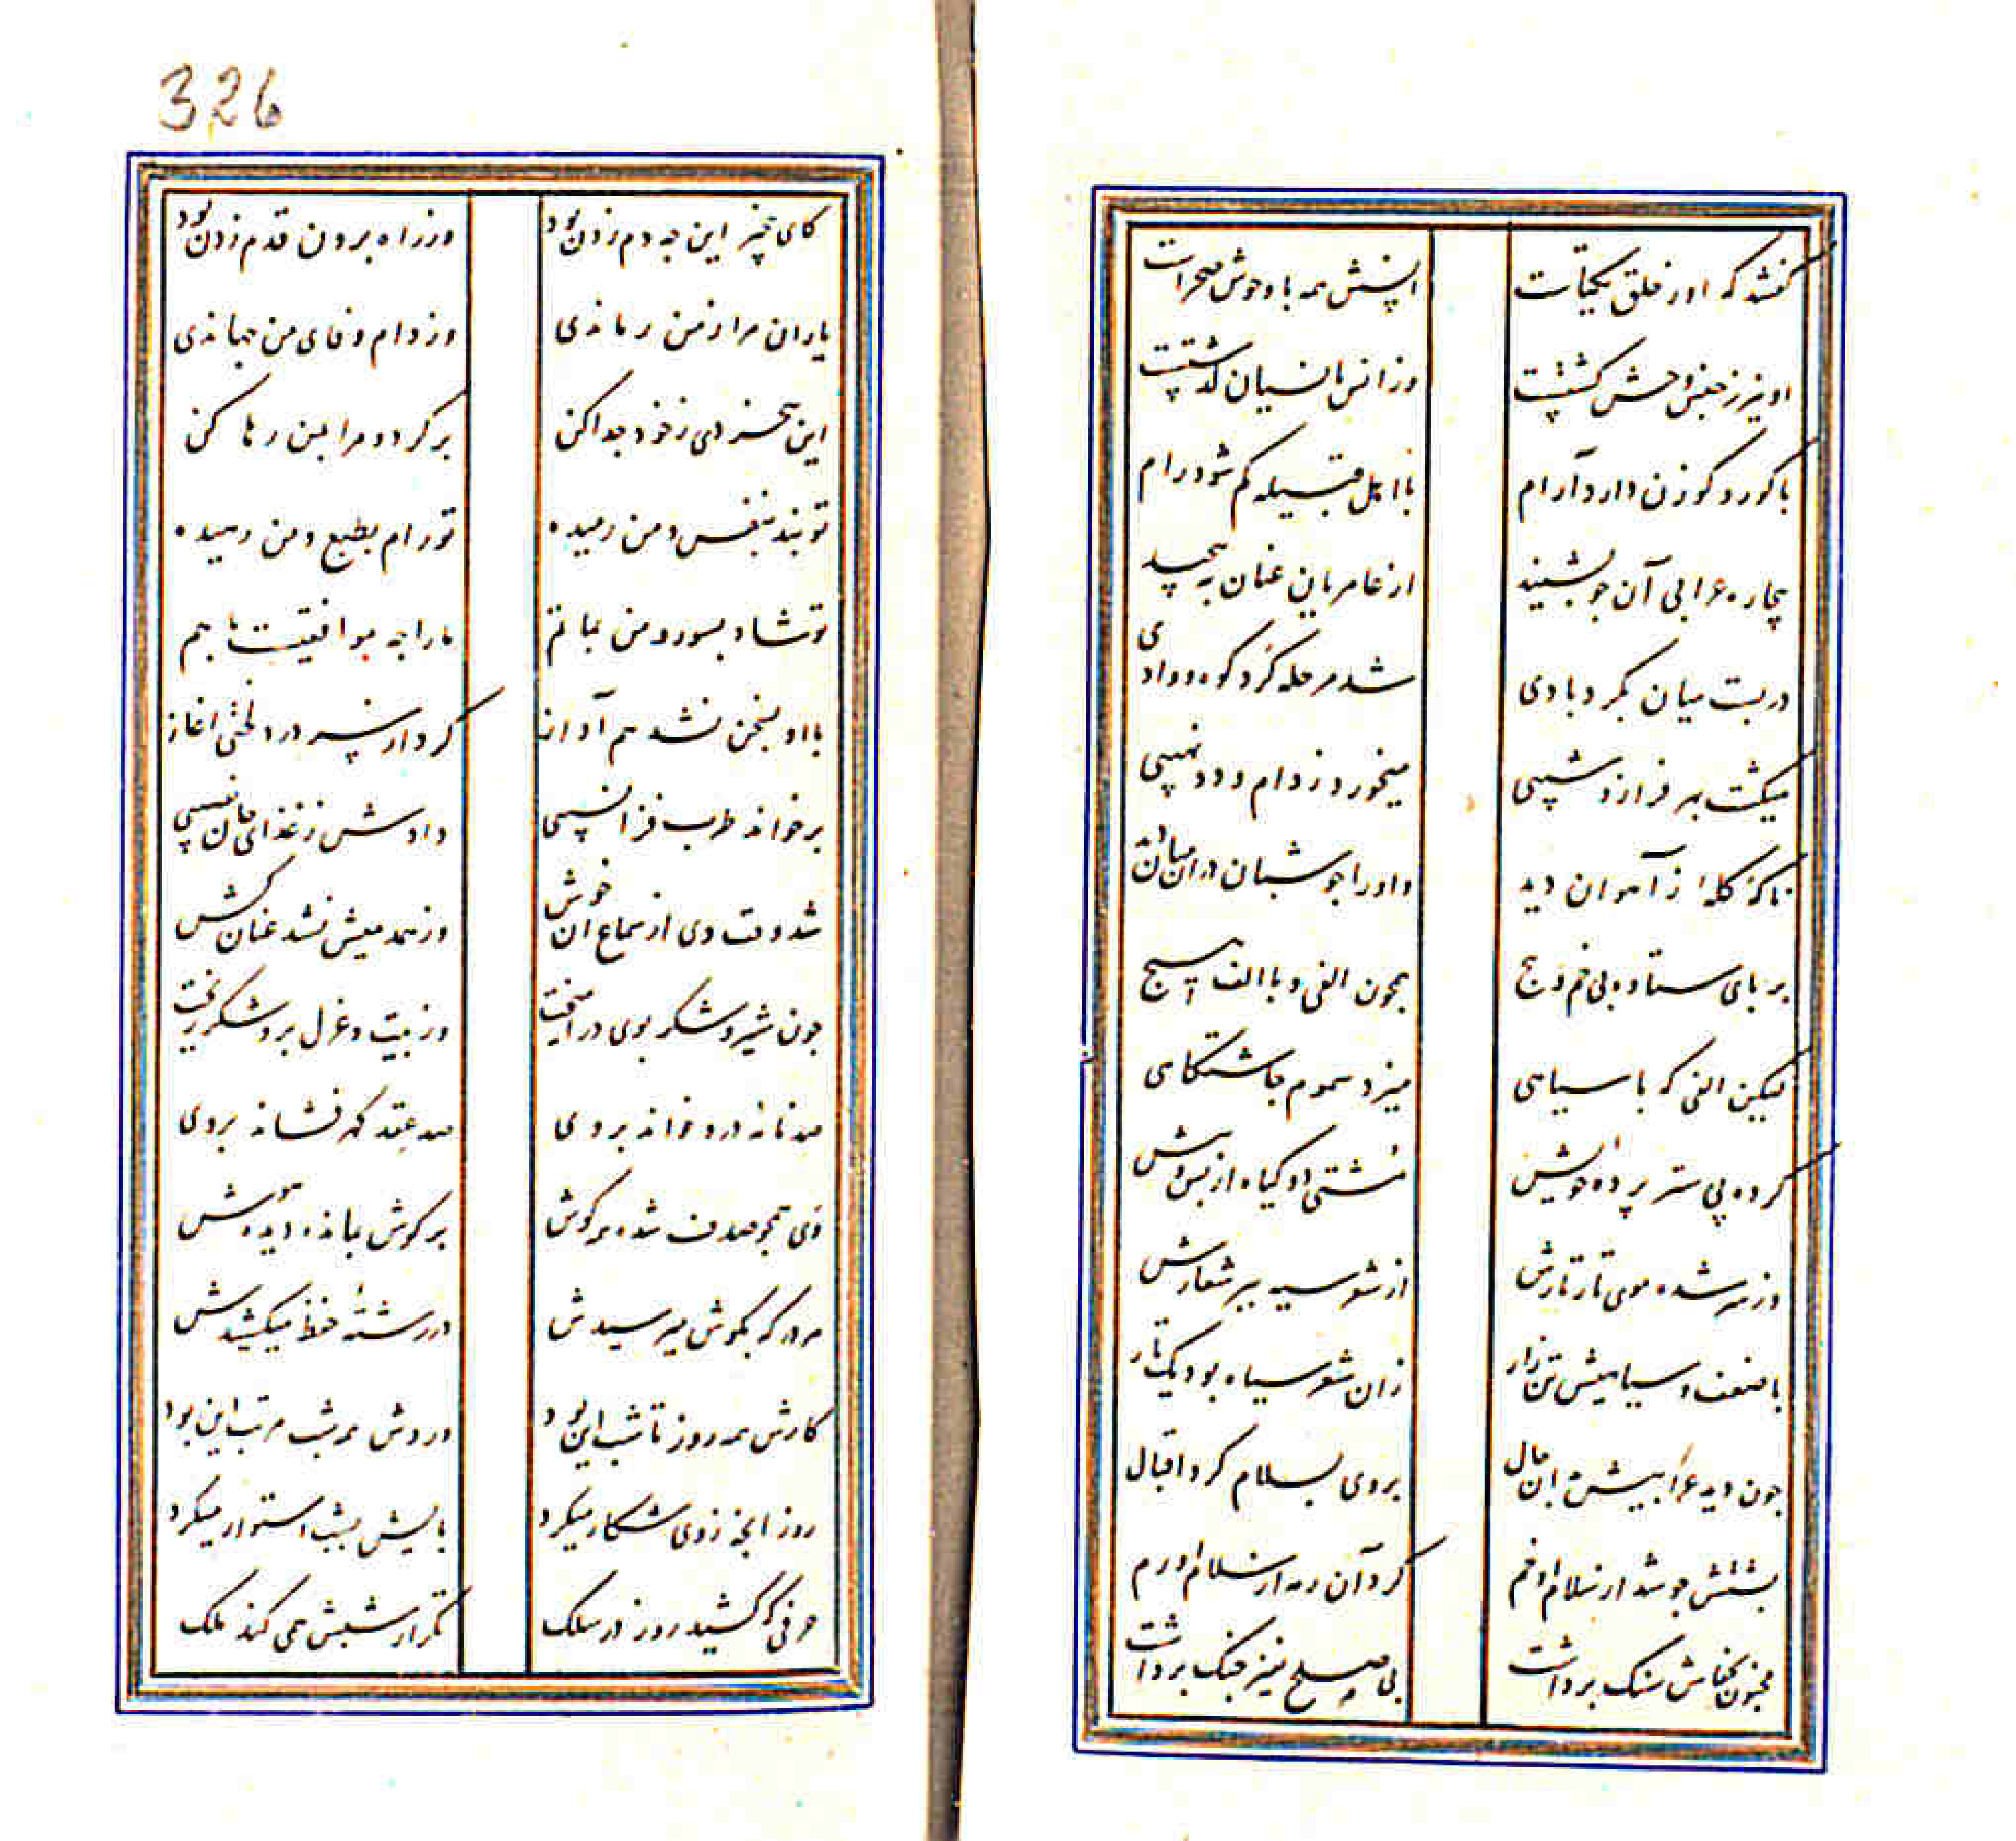 گفتند که او ز خلق یکتاست
انسش همه با وحوش صحراست
او نیز ز جنس وحش گشتست
وز انس بانسیان گذشتست
با گور و گوزن دارد آرام
با اهل قبیله کم شود رام
بیچاره عرابی آن چو بشنید
از عامریان عنان بپیچید
دربست میان بگرد بادی
شد مرحله گرد کوه و وادی
میگشت بهر فراز و شیبی
میخورد ز دام و دد نهیبی
ناگه گله از آهوان دید
و او را چو شبان در آن میان دید
بر پای ستاده بی خم و پیچ
همچون الفی و با الف هیچ
لیکن الفی که با سیاهی
میزد سموم چاشتگاهی
کرده پی ستر پرده خویش
مشتی دو گیاه از پس و پیش
وز سر شده موی تار تارش
از شعر سیه ببر شعارش
با ضعف و سیاهیش تن زار
زان شعر سیاه بود یک تار
چون دید عرابیش بدان حال
بر وی بسلام کرد اقبال
پشتش چو شد از سلام او خم
کرد آن رمه از سلام او رم
مجنون بجفاش سنگ برداشت
بی صلح نفیر جنگ برداشت
326
کای بیخبر این چه دم زدن بود
وز راه برون قدم زدن بود
یاران مرا ز من رماندی
وز دام وفای من جهاندی
این بیخردی ز خود جدا کن
برگرد و مرا بمن رها کن
تو بند بنفس و من رمیده
تو رام بطبع و من رمیده
تو شاد بسور و من بماتم
ما را چه موافقیست با هم
با او بسخن نشد هم آواز
کرد از سر درد لختی آغاز
برخواند طرب فزا نسیبی
دادش ز غذای جان نصیبی
شد وقت وی از سماع آن خوش
وز همدمیش نشد عنان کش
چون شیر و شکر بوی درآمیخت
وز بیت و غزل برو شکر ریخت
صد نادره خواند بر وی
صد عقد گهر فشاند بر وی
وی همچو صدف شده همه گوش
بر گوش بمانده دیده هوش
هر در که بگوش میرسیدش
در رشته حفظ میکشیدش
کارش همه روز تا شب این بود
وردش همه شب مرتب این بود
روز آنچه ز وی شکار میکرد
پایش بشب استوار میکرد
حرفی که کشید روز در سلک
تکرار شبش همی کند ملک